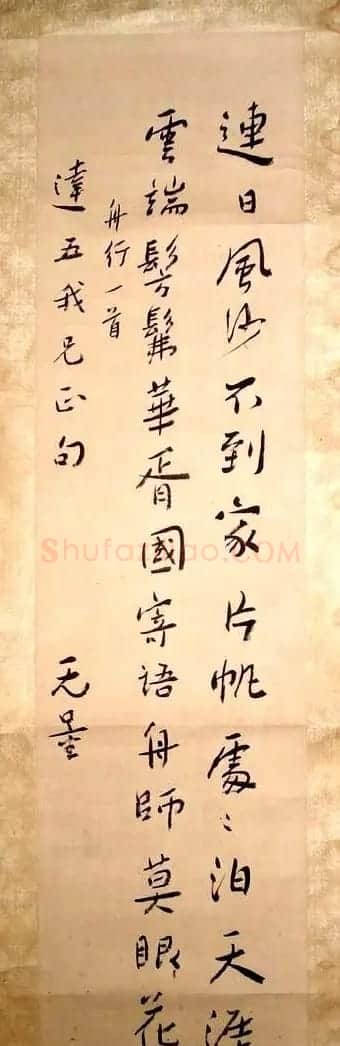 連日風沙不到家片帆處〻泊天涯
雲端髣髴華胥國寄語舟師莫眼花
舟行一首
達五我兄正句
无量